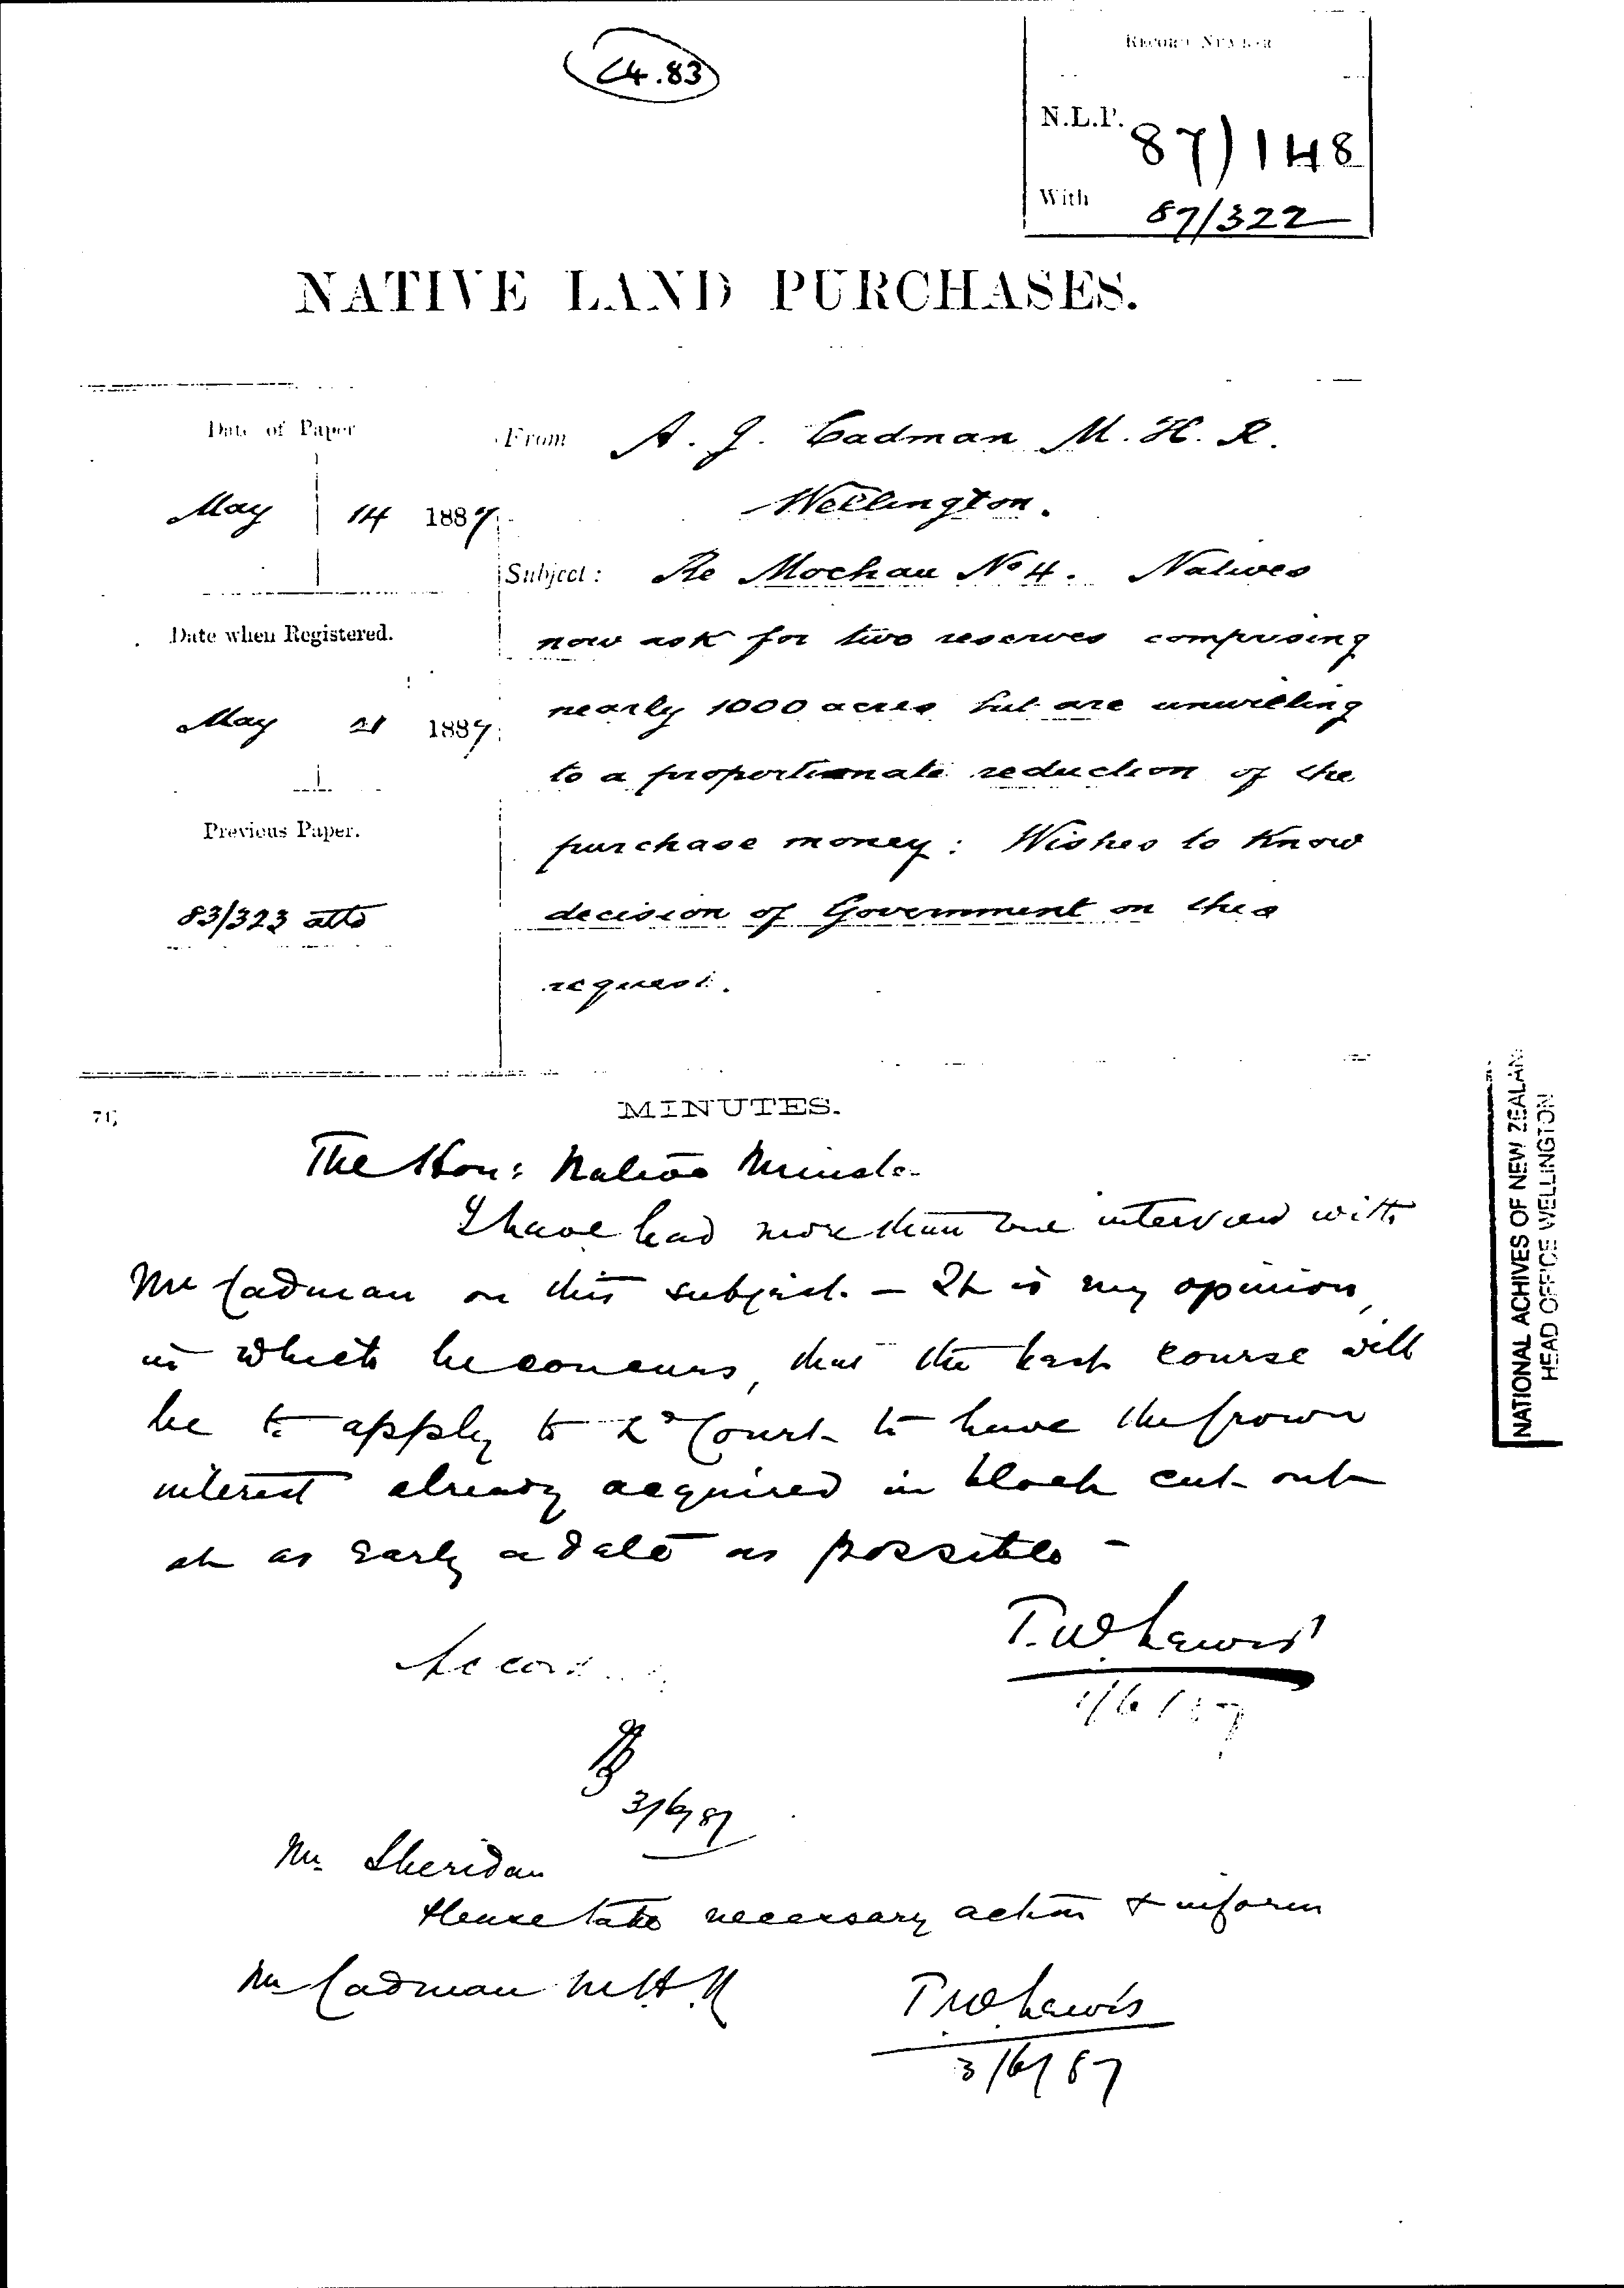 C4.83
RECORD NUMBER
N.L.P. 87/148
With 87/322
NATIVE LAND PURCHASES.
Date of Paper
May 14 1887
Date when Registered.
May 21 1887
Previous Paper.
83/323 atto
From A. J. Cadman M. H. R.
Wellington.
Subject: Re Moehau No 4. Natives
now ask for two reserves comprising
nearly 1000 acres but are unwilling
to a proportionate reduction of the
purchase money: Wishes to know
decision of Government on this
request.
MINUTES.
The Hon: Native Minister
I have had more than one interview with
Mr Cadman on this subject. – It is my opinion,
in which he concurs, that the best course will
be to apply to Court to have the Crown
interest already acquired in block cut out
at as early a date as possible –
T.W. Lewis
1/6/87
3/6/87
Mr. Sheridan
Please take necessary action & inform
Mr Cadman M.H.R
T.W. Lewis
3/6/87
NATIONAL ACHIVES OF NEW ZEALAND
HEAD OFFICE WELLINGTON